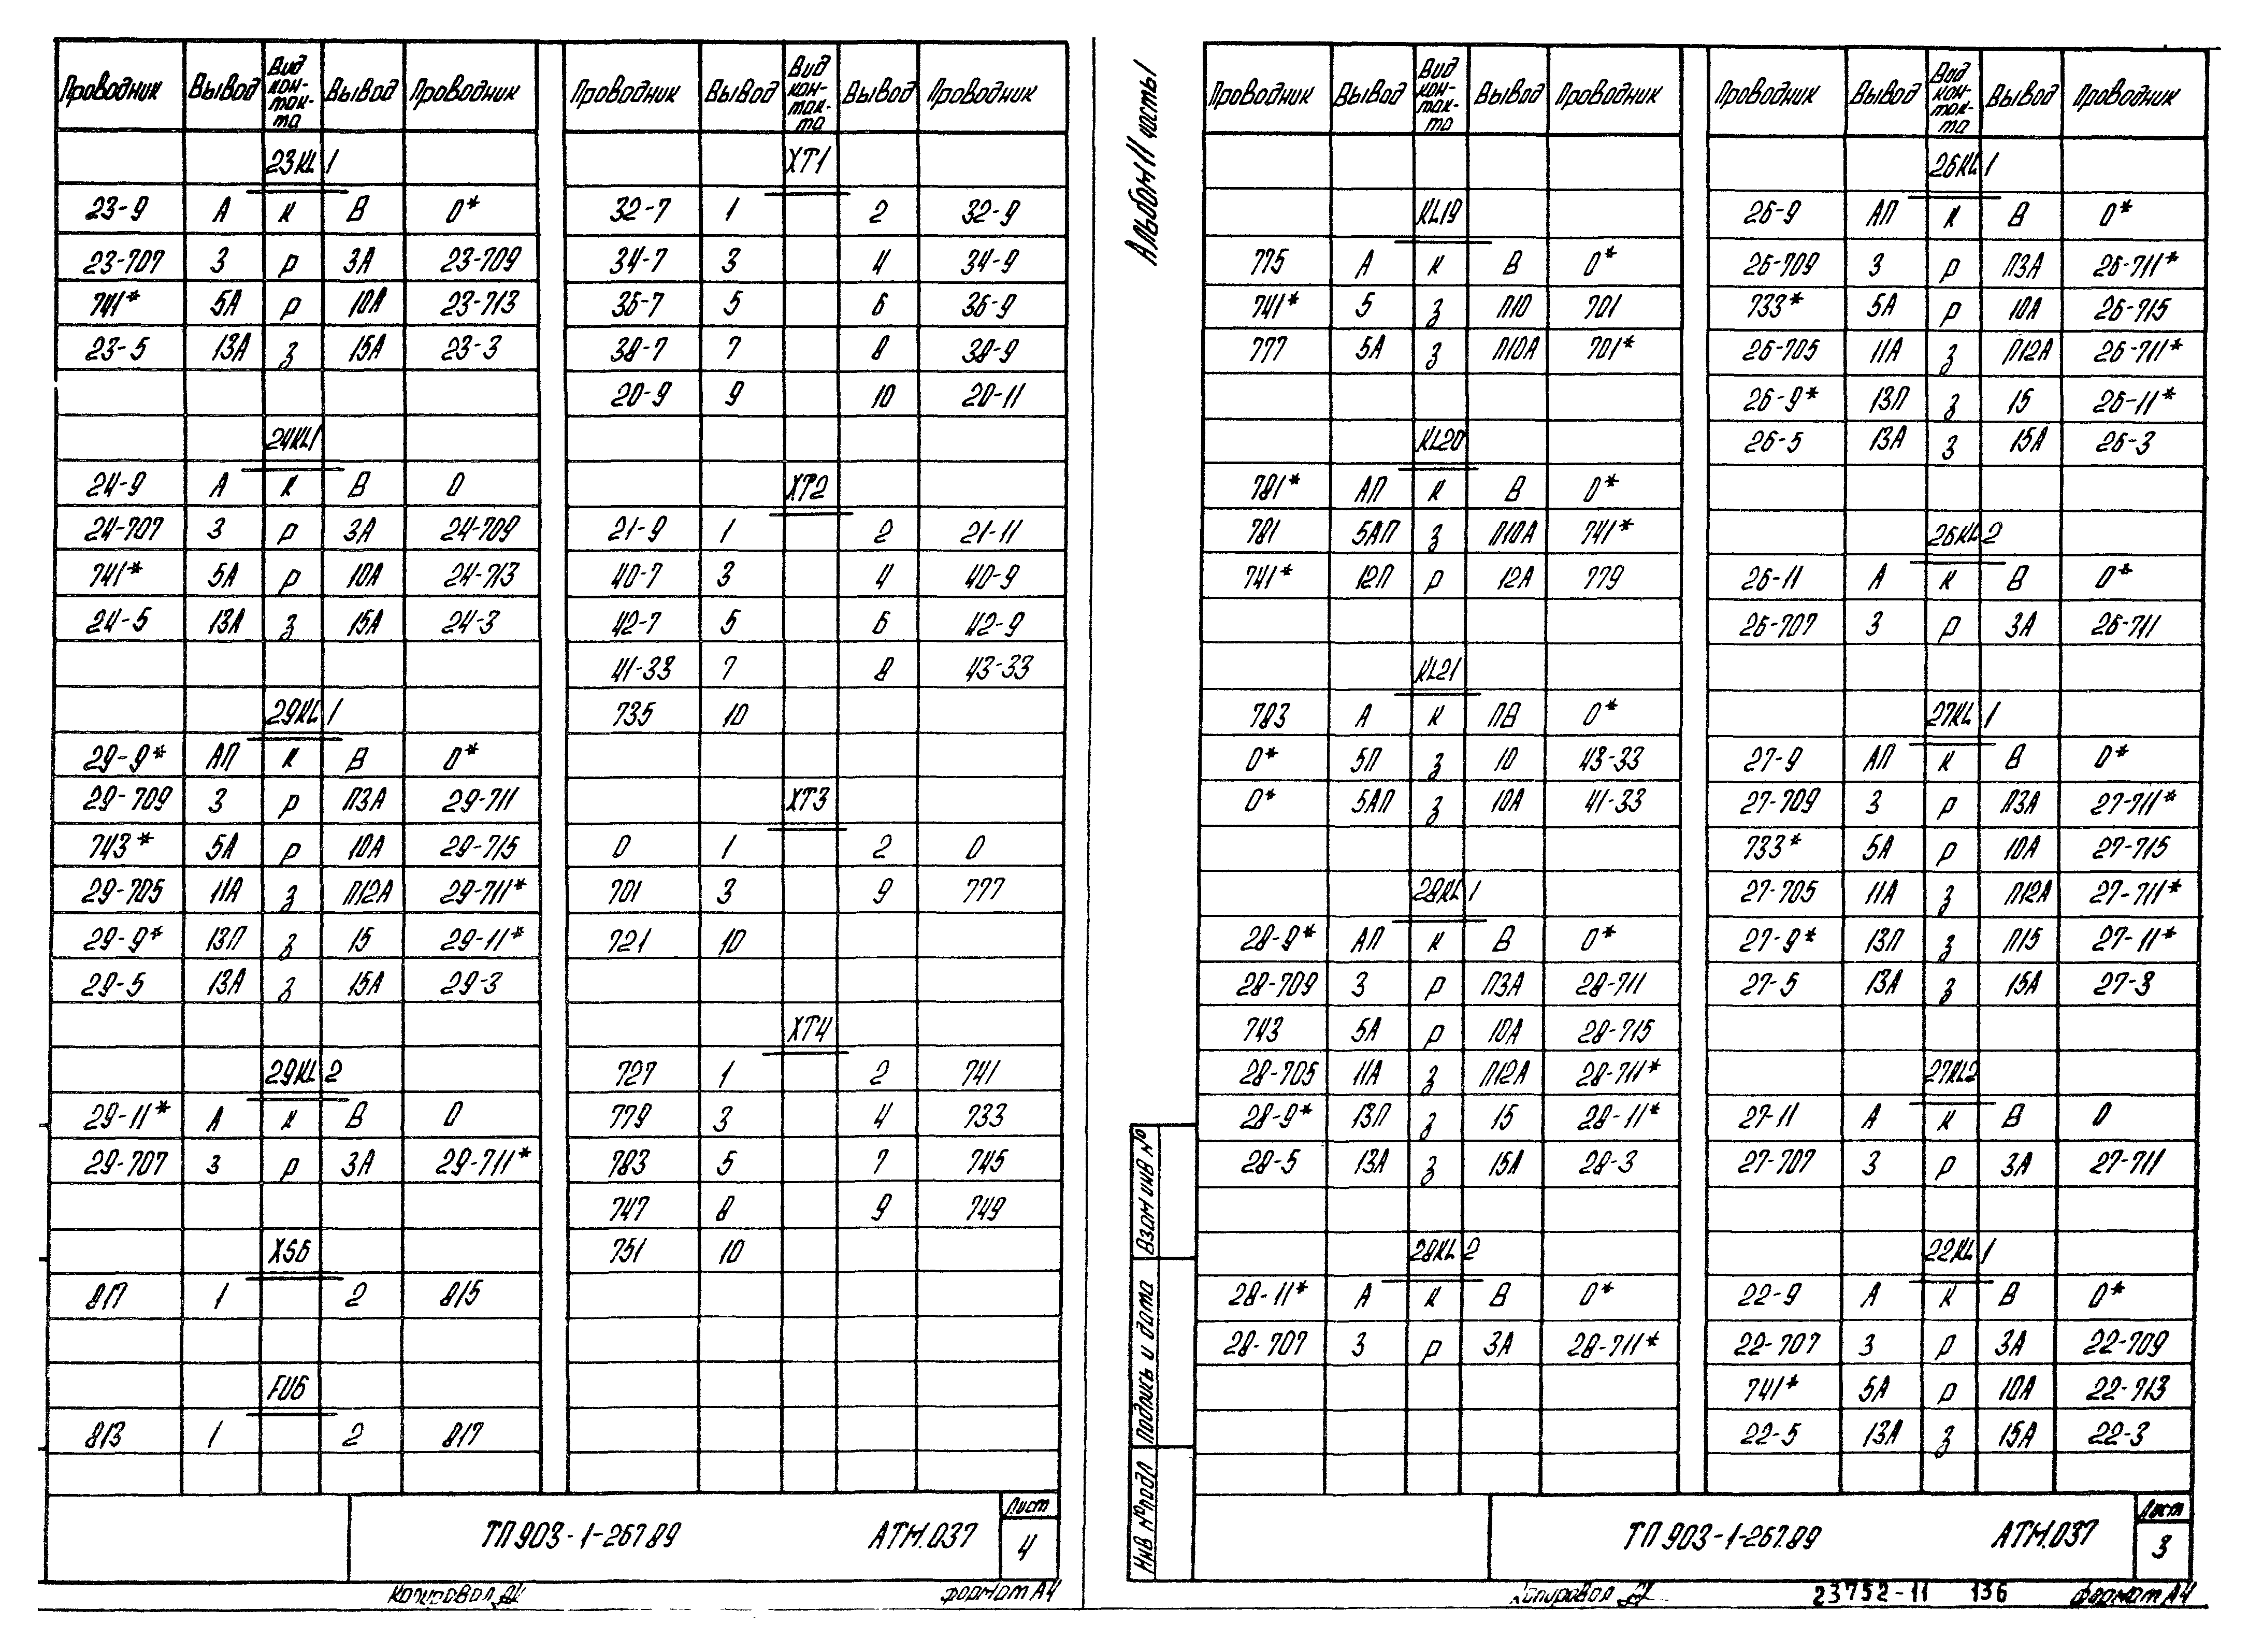 Проводник Вывод Вид кон-так-та Вывод Проводник Проводник Вывод Вид кон-так-та Вывод Проводник
23KL1 XT1
23-9 А к В 0* 32-7 1 2 32-9
23-707 3 р 3А 23-709 34-7 3 4 34-9
741* 5А р 10А 23-713 36-7 5 6 36-9
23-5 13А з 15А 23-3 38-7 7 8 38-9
20-9 9 10 20-11
24KL1
24-9 А к В 0 XT2
24-707 3 р 3А 24-709 21-9 1 2 21-11
741* 5А р 10А 24-713 40-7 3 4 40-9
24-5 13А з 15А 24-3 42-7 5 6 42-9
41-33 7 8 43-33
29KL1 735 10
29-9* АП к В 0*
29-709 3 р П3А 29-711 XT3
743* 5А р 10А 29-715 0 1 2 0
29-705 11А з П12А 29-711* 701 3 9 777
29-9* 13П з 15 29-11* 721 10
29-5 13А з 15А 29-3
XT4
29KL2 727 1 2 741
29-11* А к В 0 779 3 4 733
29-707 3 р 3А 29-711* 783 5 7 745
747 8 9 749
XS6 751 10
817 1 2 815
FU6
813 1 2 817
ТП 903-1-267.89 АТМ.037 Лист 4
Копировал формат А4
Альбом 11 часть 1
Проводник Вывод Вид кон-так-та Вывод Проводник Проводник Вывод Вид кон-так-та Вывод Проводник
26KL1
KL19 26-9 АП к В 0*
775 А к В 0* 26-709 3 р П3А 26-711*
741* 5 з П10 701 733* 5А р 10А 26-715
777 5А з П10А 701* 26-705 11А з П12А 26-711*
26-9* 13П з 15 26-11*
KL20 26-5 13А з 15А 26-3
781* АП к В 0*
781 5АП з П10А 741* 26KL2
741* 12П р 12А 779 26-11 А к В 0*
26-707 3 р 3А 26-711
KL21
783 А к ПВ 0* 27KL1
0* 5П з 10 43-33 27-9 АП к В 0*
0* 5АП з 10А 41-33 27-709 3 р П3А 27-711*
733* 5А р 10А 27-715
28KL1 27-705 11А з П12А 27-711*
28-9* АП к В 0* 27-9* 13П з П15 27-11*
28-709 3 р П3А 28-711 27-5 13А з 15А 27-3
743 5А р 10А 28-715
28-705 11А з П12А 28-711* 27KL2
28-9* 13П з 15 28-11* 27-11 А к В 0
28-5 13А з 15А 28-3 27-707 3 р 3А 27-711
28KL2 22KL1
28-11* А к В 0* 22-9 А к В 0*
28-707 3 р 3А 28-711* 22-707 3 р 3А 22-709
741* 5А р 10А 22-713
22-5 13А з 15А 22-3
Взам инв №
Подпись и дата
Инв № подл
ТП 903-1-267.89 АТМ.037 Лист 3
Копировал 23752-11 136 формат А4